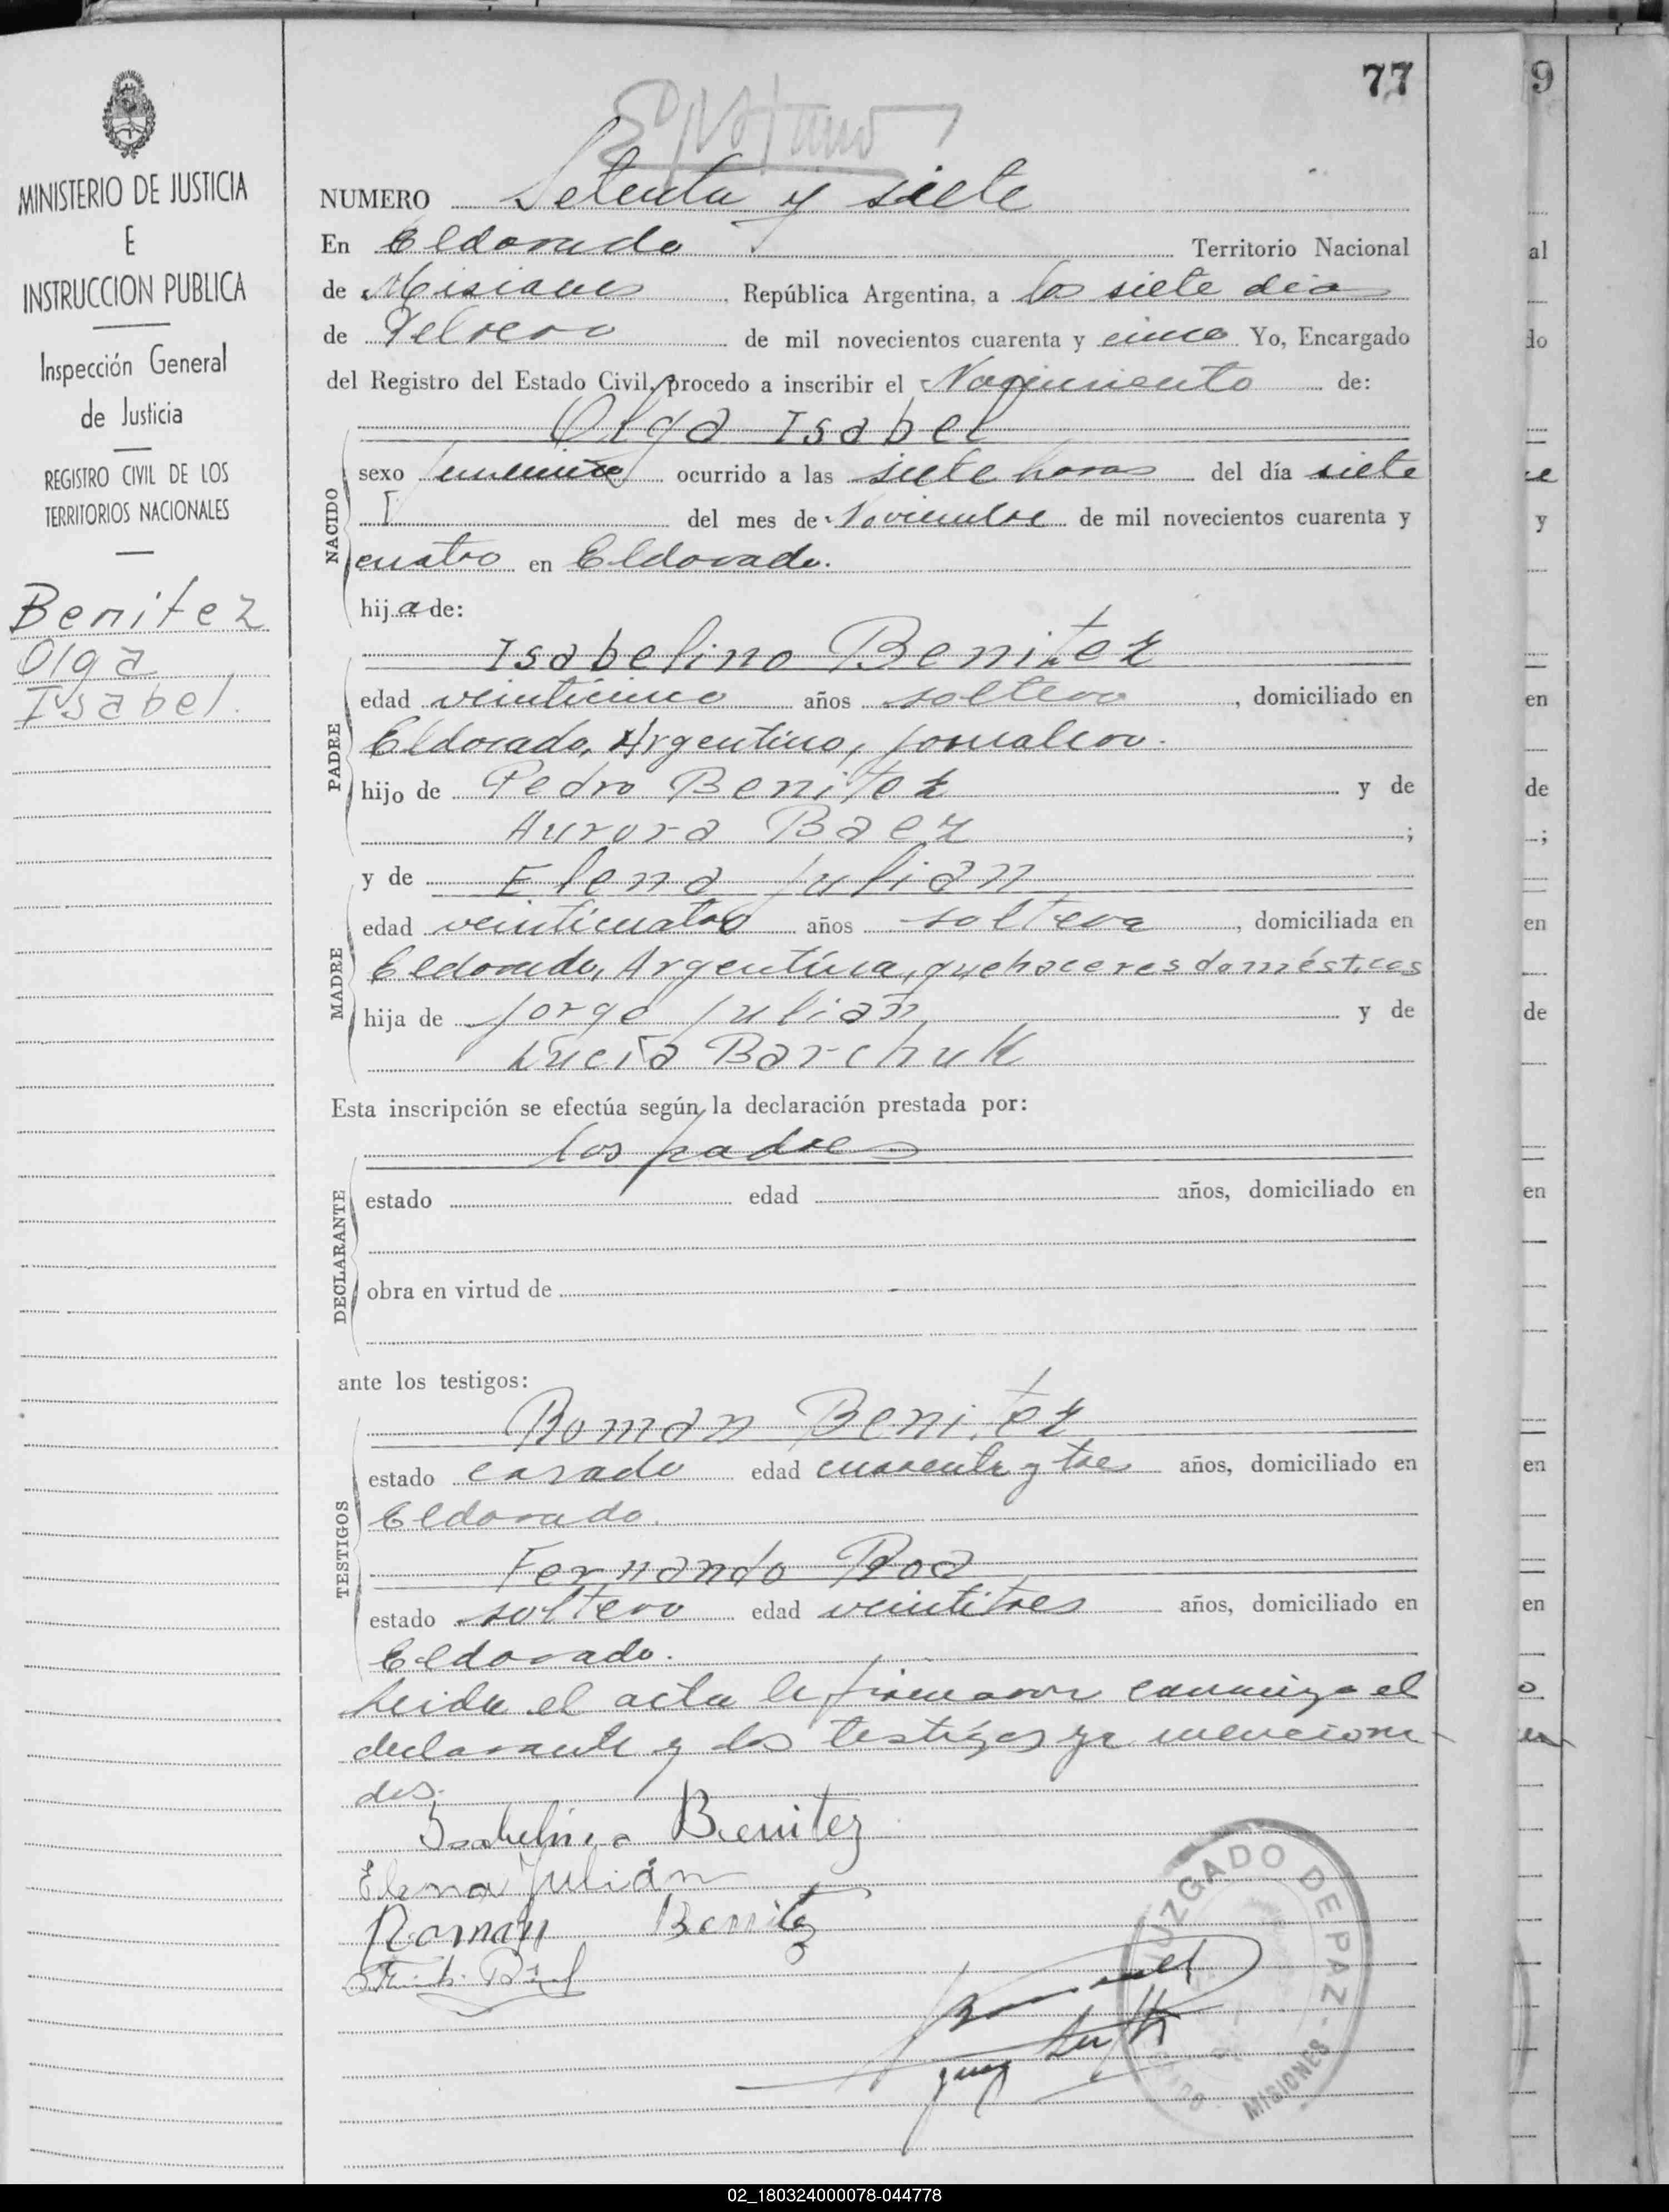 77
9
MINISTERIO DE JUSTICIA
E
INSTRUCCION PUBLICA
Inspección General
de Justicia
REGISTRO CIVIL DE LOS
TERRITORIOS NACIONALES
Benitez
Olga
Isabel.
NUMERO Setenta y siete
En Eldorado Territorio Nacional
de Misiones República Argentina, a los siete dias
de Febrero de mil novecientos cuarenta y cinco Yo, Encargado
del Registro del Estado Civil, procedo a inscribir el Nacimiento de:
Olga Isabel
NACIDO
sexo femenino ocurrido a las siete horas del día siete
del mes de Noviembre de mil novecientos cuarenta y
cuatro en Eldorado.
hija de:
Isabelino Benitez
PADRE
edad veinticinco años soltero, domiciliado en
Eldorado, Argentino, jornalero.
hijo de Pedro Benitez y de
Aurora Baez ;
y de Elena Julian
MADRE
edad veinticuatro años soltera, domiciliada en
Eldorado, Argentina, quehaceres domésticos
hija de Jorge Julian y de
Lucia Barchuk
Esta inscripción se efectúa según la declaración prestada por:
los padres
DECLARANTE
estado edad años, domiciliado en
obra en virtud de
ante los testigos:
Roman Benitez
TESTIGOS
estado casado edad cuarenta y tres años, domiciliado en
Eldorado.
Fernando Roa
estado soltero edad veintitres años, domiciliado en
Eldorado.
Leida el acta la firmaron conmigo el
declarante y los testigos ya menciona
dos.
Isabelino Benitez
Elena Julián
Roman Benitez
JUZGADO DE PAZ - MISIONES
al
do
y
en
de
en
de
en
en
en
02_180324000078-044778